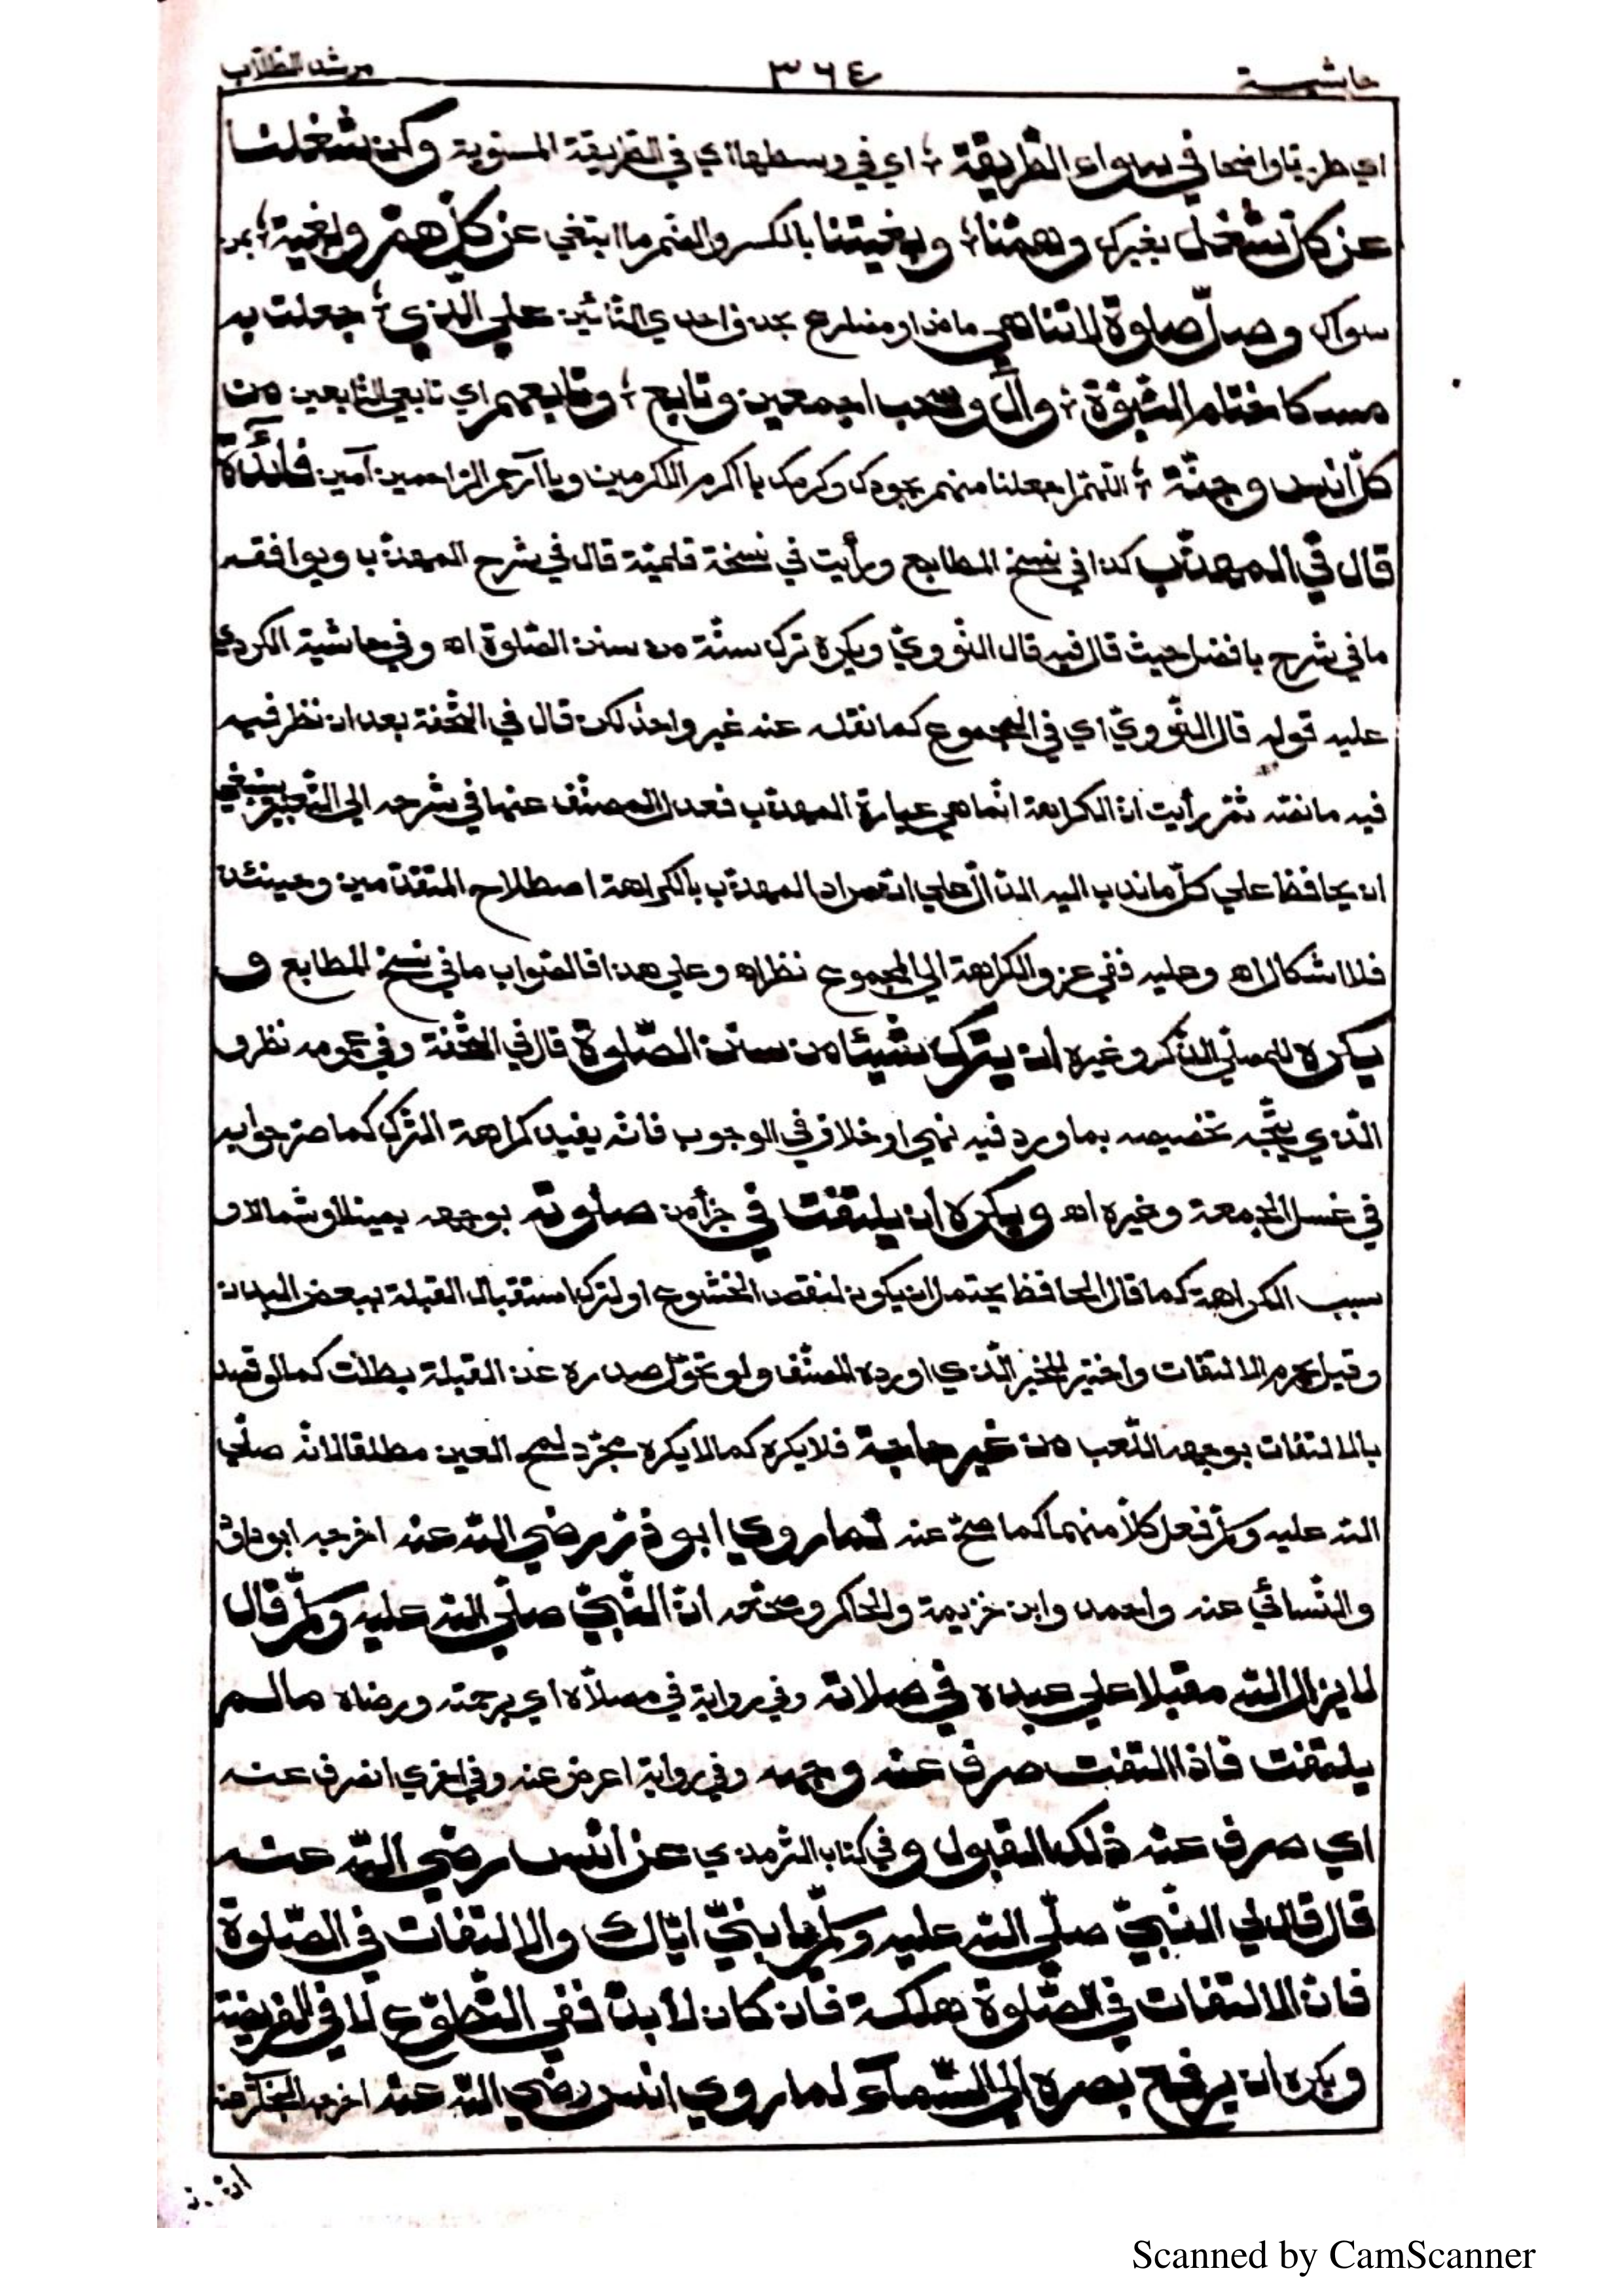 حاشية ٣٦٤ مرشد الطلاب
اي طريقا واضحا في سواء الطريقة ؛ اي في وسطها اي في الطريقة المستوية وكن شغلنا
عن كل شغل بغيرك وهمنا ؛ وبغيتنا بالكسر والضم ما ابتغي عن كل هم وبغية ؛ بمن
سواك وصل صلوة لا تناهي ماض او مضارع بحذف احدي التائين علي الذي ؛ جعلت به
مسكا ختام النبوة ؛ وآل وصحب اجمعين وتابع ؛ وتابعهم اي تابعي التابعين من
كل انس وجنة ؛ اللهم اجعلنا منهم بجودك وكرمك يا اكرم الاكرمين ويا ارحم الراحمين آمين فائدة
قال في المهذب كذا في نسخ المطابع ورأيت في نسخة قلمية قال في شرح المهذب ويوافقه
ما في شرح بافضل حيث قال فيه قال النووي ويكره ترك سنة من سنن الصلوة اه وفي حاشية الكردي
عليه قوله قال النووي اي في المجموع كما نقله عنه غير واحد لكن قال في التحفة بعد ان نظر فيه
فيه ما نصه ثم رأيت ان الكراهة انما هي عبارة المهذب فعدل المصنف عنها في شرحه الي التعبير بينبغي
ان يحافظ علي كل ما ندب اليه الدال علي ان مراد المهذب بالكراهة اصطلاح المتقدمين وحينئذ
فلا اشكال اه وعليه ففي عزو الكراهة الي المجموع نظر اه وعلي هذا فالصواب ما في نسخ المطابع و
يكره للمصلي الذكر وغيره ان يترك شيئا من سنن الصلوة قال في التحفة وفي عمومه نظر و
الذي يتجه تخصيصه بما ورد فيه نهي او خلاف في الوجوب فانه يفيد كراهة الترك كما صرحوا به
في غسل الجمعة وغيره اه ويكره ان يلتفت في جزأ من صلوته بوجهه يمينا او شمالا و
سبب الكراهة كما قال الحافظ يحتمل ان يكون لنقص الخشوع او لترك استقبال القبلة ببعض البدن
وقيل يحرم الالتفات واختير للخبر الذي اورده المصنف ولو تحول صدره عن القبلة بطلت كما لو قصد
بالالتفات بوجهه اللعب من غير حاجة فلا يكره كما لا يكره مجرد لمح العين مطلقا لانه صلي
الله عليه وسلم فعل كلا منهما كما صح عنه لما روي ابو ذر رضي الله عنه اخرجه ابو داود
والنسائي عنه واحمد وابن خزيمة والحاكر وصححه ان النبي صلي الله عليه وسلم قال
لا يزال الله مقبلا علي عبده في صلاته وفي رواية في مصلاه اي برحمته ورضاه مالم
يلتفت فاذا التفت صرف عنه وجهه وفي رواية اعرض عنه وفي اخري انصرف عنه
اي صرف عنه ذلك القبول وفي كتاب الترمذي عن انس رضي الله عنه
قال قال لي النبي صلي الله عليه وسلم يا بني اياك والالتفات في الصلوة
فان الالتفات في الصلوة هلكة فان كان لا بد ففي التطوع لا في الفريضة
ويكره ان يرفع بصره الي السماء لما روي انس رضي الله عنه اخرجه
Scanned by CamScanner